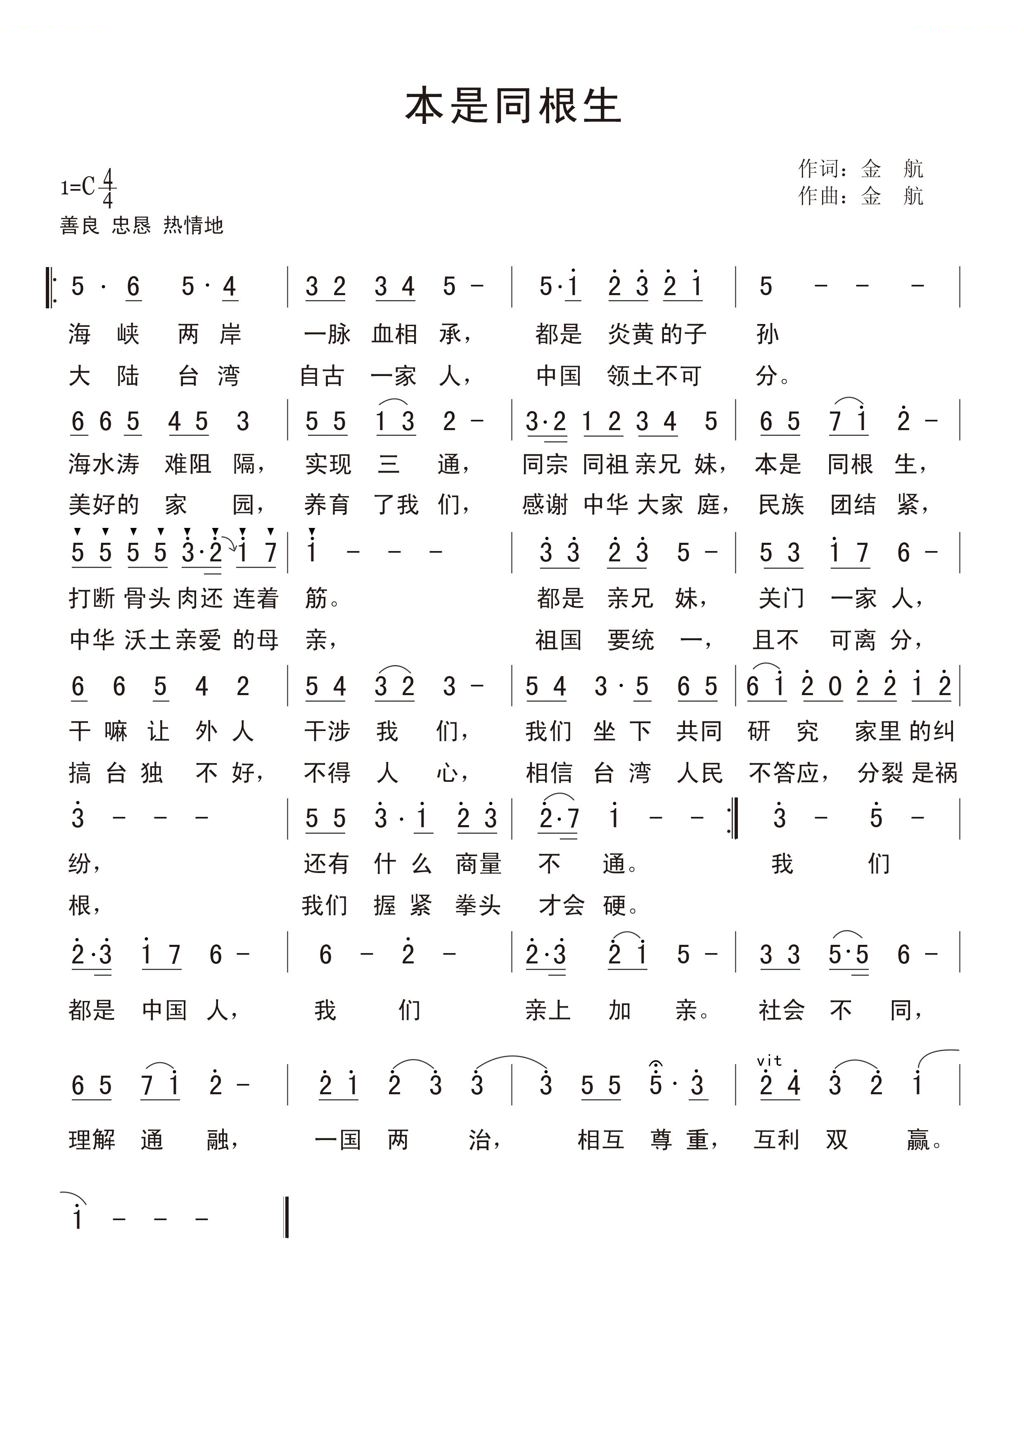 本是同根生
作词：金 航
1=C 4/4
作曲：金 航
善良 忠恳 热情地
5 · 6 5 · 4 | 3 2 3 4 5 - | 5 · i 2 3 2 1 | 5 - - - |
海 峡 两 岸 一脉 血相 承， 都是 炎黄 的子 孙
大 陆 台 湾 自古 一家 人， 中国 领土不可 分。
6 6 5 4 5 3 | 5 5 1 3 2 - | 3·2 1 2 3 4 5 | 6 5 7 i 2 - |
海水涛 难阻 隔， 实现 三 通， 同宗 同祖 亲兄 妹， 本是 同根 生，
美好的 家 园， 养育 了我 们， 感谢 中华 大家 庭， 民族 团结 紧，
5 5 5 5 3·2 i 7 | i - - - | 3 3 2 3 5 - | 5 3 i 7 6 - |
打断 骨头 肉还 连着 筋。 都是 亲兄 妹， 关门 一家 人，
中华 沃土 亲爱 的母 亲， 祖国 要统 一， 且不 可离 分，
6 6 5 4 2 | 5 4 3 2 3 - | 5 4 3 · 5 6 5 | 6 i 2 0 2 2 i 2 |
干 嘛 让 外 人 干涉 我 们， 我们 坐 下 共同 研 究 家里 的纠
搞 台 独 不 好， 不得 人 心， 相信 台 湾 人民 不答应， 分裂 是祸
3 - - - | 5 5 3 · i 2 3 | 2·7 i - - :| 3 - 5 - |
纷， 还有 什 么 商量 不 通。 我 们
根， 我们 握 紧 拳头 才会 硬。
2·3 i 7 6 - | 6 - 2 - | 2·3 2 i 5 - | 3 3 5·5 6 - |
都是 中国 人， 我 们 亲上 加 亲。 社会 不 同，
vit
6 5 7 i 2 - | 2 i 2 3 3 | 3 5 5 5 · 3 | 2 4 3 2 i |
理解 通 融， 一国 两 治， 相互 尊 重， 互利 双 赢。
i - - - |